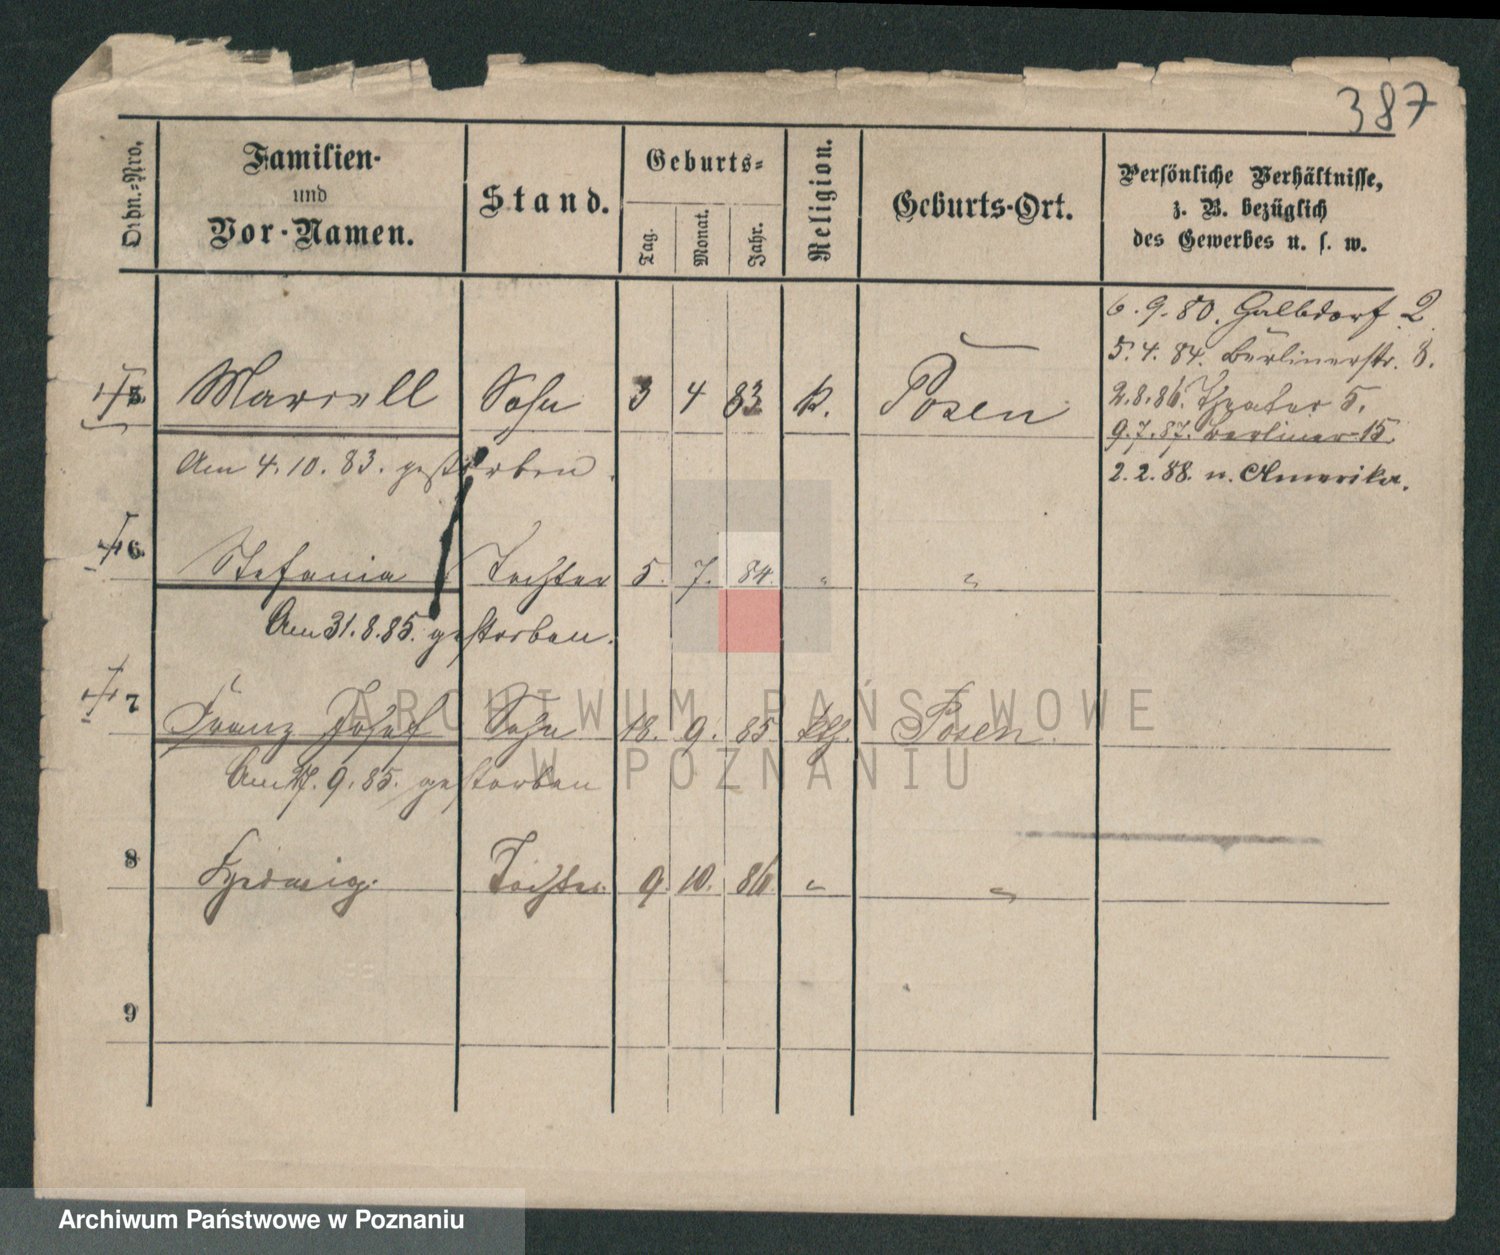 387
Ordn.-Nro.
Familien-
und
Vor-Namen.
Stand.
Geburts-
Tag.
Monat.
Jahr.
Religion.
Geburts-Ort.
Persönliche Verhältnisse,
z. B. bezüglich
des Gewerbes u. s. w.
6. 9. 80. Halbdorf 2.
5. 4. 84. Berlinerstr. 8.
2. 8. 86. Theater 5.
9. 7. 87. Berliner 15.
2. 2. 88. n. Amerika.
5 Marcell Sohn 3 4 83 k. Posen
Am 4. 10. 83. gestorben.
6. Stefania Tochter 5. 7. 84. " "
Am 31. 8. 85. gestorben.
7 Franz Josef Sohn 18. 9. 85 kth. Posen.
Am 9. 85. gestorben
8 Hedwig. Tochter 9. 10. 86 " "
9
ARCHIWUM PAŃSTWOWE
W POZNANIU
Archiwum Państwowe w Poznaniu